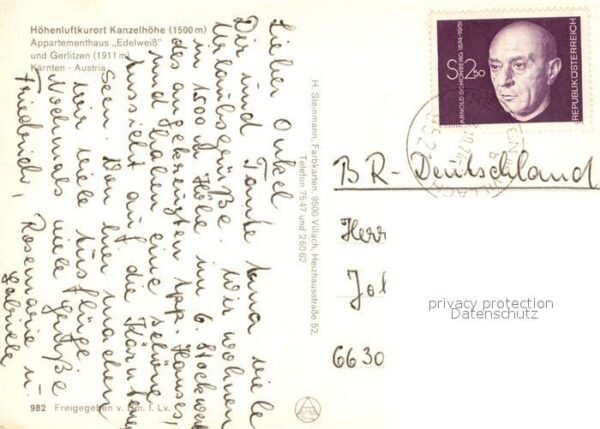 Höhenluftkurort Kanzelhöhe (1500 m)
Appartementhaus „Edelweiß"
und Gerlitzen (1911 m)
Kärnten - Austria
Lieber Onkel
Dir und Tante Anna viele
Urlaubsgrüße. Wir wohnen
in 1500 m Höhe im 6. Stockwerk
des angekreuzten App. Hauses
und haben eine schöne
Aussicht auf die Kärntener
Seen. Von hier machen
wir viele Ausflüge.
Nochmals viele Grüße
Friedrich, Rosemarie u.
Gabriele
982 Freigegeben v. Bm. f. Lv.
H. Steinmann, Farbkarten, 9500 Villach, Heizhausstraße 52,
Telefon 7547 und 26062
S 2.50
ARNOLD SCHÖNBERG 1874-1951
REPUBLIK ÖSTERREICH
BR-Deutschland
Herr
Jo
6630
privacy protection
Datenschutz